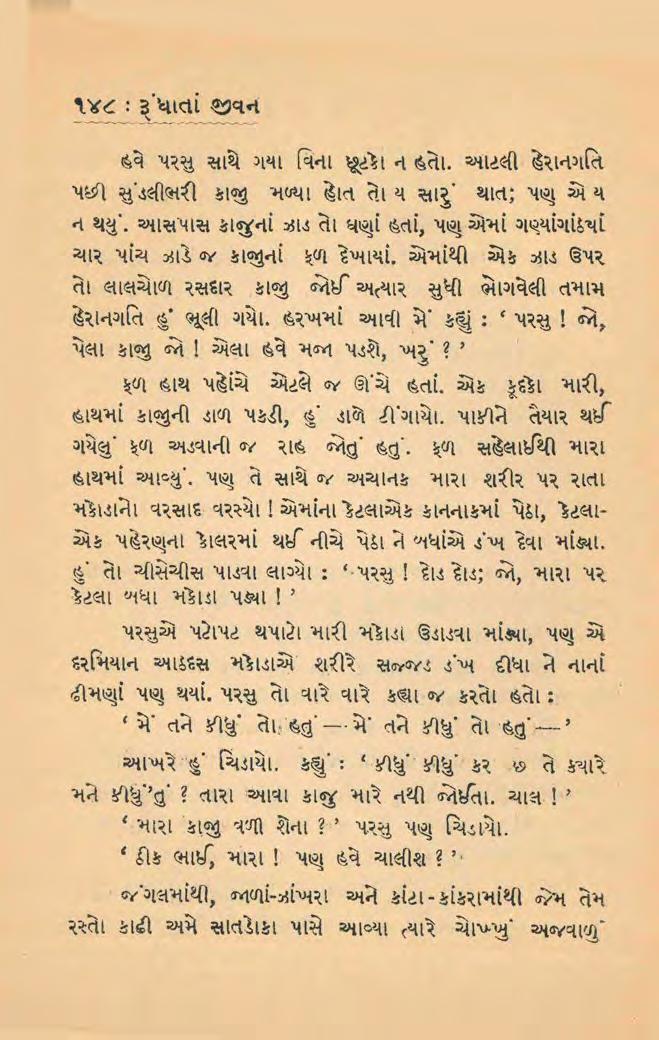 ૧૪૮ : રૂંધાતાં જીવન
હવે પરસુ સાથે ગયા વિના છૂટકો ન હતો. આટલી હેરાનગતિ
પછી સુંડલીભરી કાજુ મળ્યા હોત તો ય સારું થાત; પણ એ ય
ન થયું. આસપાસ કાજુનાં ઝાડ તો ઘણાં હતાં, પણ એમાં ગણ્યાંગાંઠ્યાં
ચાર પાંચ ઝાડે જ કાજુનાં ફળ દેખાયાં. એમાંથી એક ઝાડ ઉપર
તો લાલચોળ રસદાર કાજુ જોઈ અત્યાર સુધી ભોગવેલી તમામ
હેરાનગતિ હું ભૂલી ગયો. હરખમાં આવી મેં કહ્યું : ‘ પરસુ ! જો,
પેલા કાજુ જો ! એલા હવે મજા પડશે, ખરું ? ’
ફળ હાથ પહોંચે એટલે જ ઊંચે હતાં. એક કૂદકો મારી,
હાથમાં કાજુની ડાળ પકડી, હું ડાળે ટીંગાયો. પાકીને તૈયાર થઈ
ગયેલું ફળ અડવાની જ રાહ જોતું હતું. ફળ સહેલાઈથી મારા
હાથમાં આવ્યું. પણ તે સાથે જ અચાનક મારા શરીર પર રાતા
મકોડાનો વરસાદ વરસ્યો ! એમાંના કેટલાએક કાનનાકમાં પેઠા, કેટલા-
એક પહેરણના કોલરમાં થઈ નીચે પેઠા ને બધાંએ ડંખ દેવા માંડ્યા.
હું તો ચીસેચીસ પાડવા લાગ્યો : ‘ પરસુ ! દોડ દોડ; જો, મારા પર
કેટલા બધા મકોડા પડ્યા ! ’
પરસુએ પટોપટ થપાટો મારી મકોડા ઉડાડવા માંડ્યા, પણ એ
દરમિયાન આઠદસ મકોડાએ શરીરે સજ્જડ ડંખ દીધા ને નાનાં
ઢીમણાં પણ થયાં. પરસુ તો વારે વારે કહ્યા જ કરતો હતો :
‘ મેં તને કીધું તો હતું — મેં તને કીધું તો હતું — ’
આખરે હું ચિડાયો. કહ્યું : ‘ કીધું કીધું કર છ તે ક્યારે
મને કીધું’તું ? તારા આવા કાજુ મારે નથી જોઈતા. ચાલ ! ’
‘ મારા કાજુ વળી શેના ? ’ પરસુ પણ ચિડાયો.
‘ ઠીક ભાઈ, મારા ! પણ હવે ચાલીશ ? ’
જંગલમાંથી, જાળાં-ઝાંખરા અને કાંટા-કાંકરામાંથી જેમ તેમ
રસ્તો કાઢી અમે સાતડોકા પાસે આવ્યા ત્યારે ચોખ્ખું અજવાળું